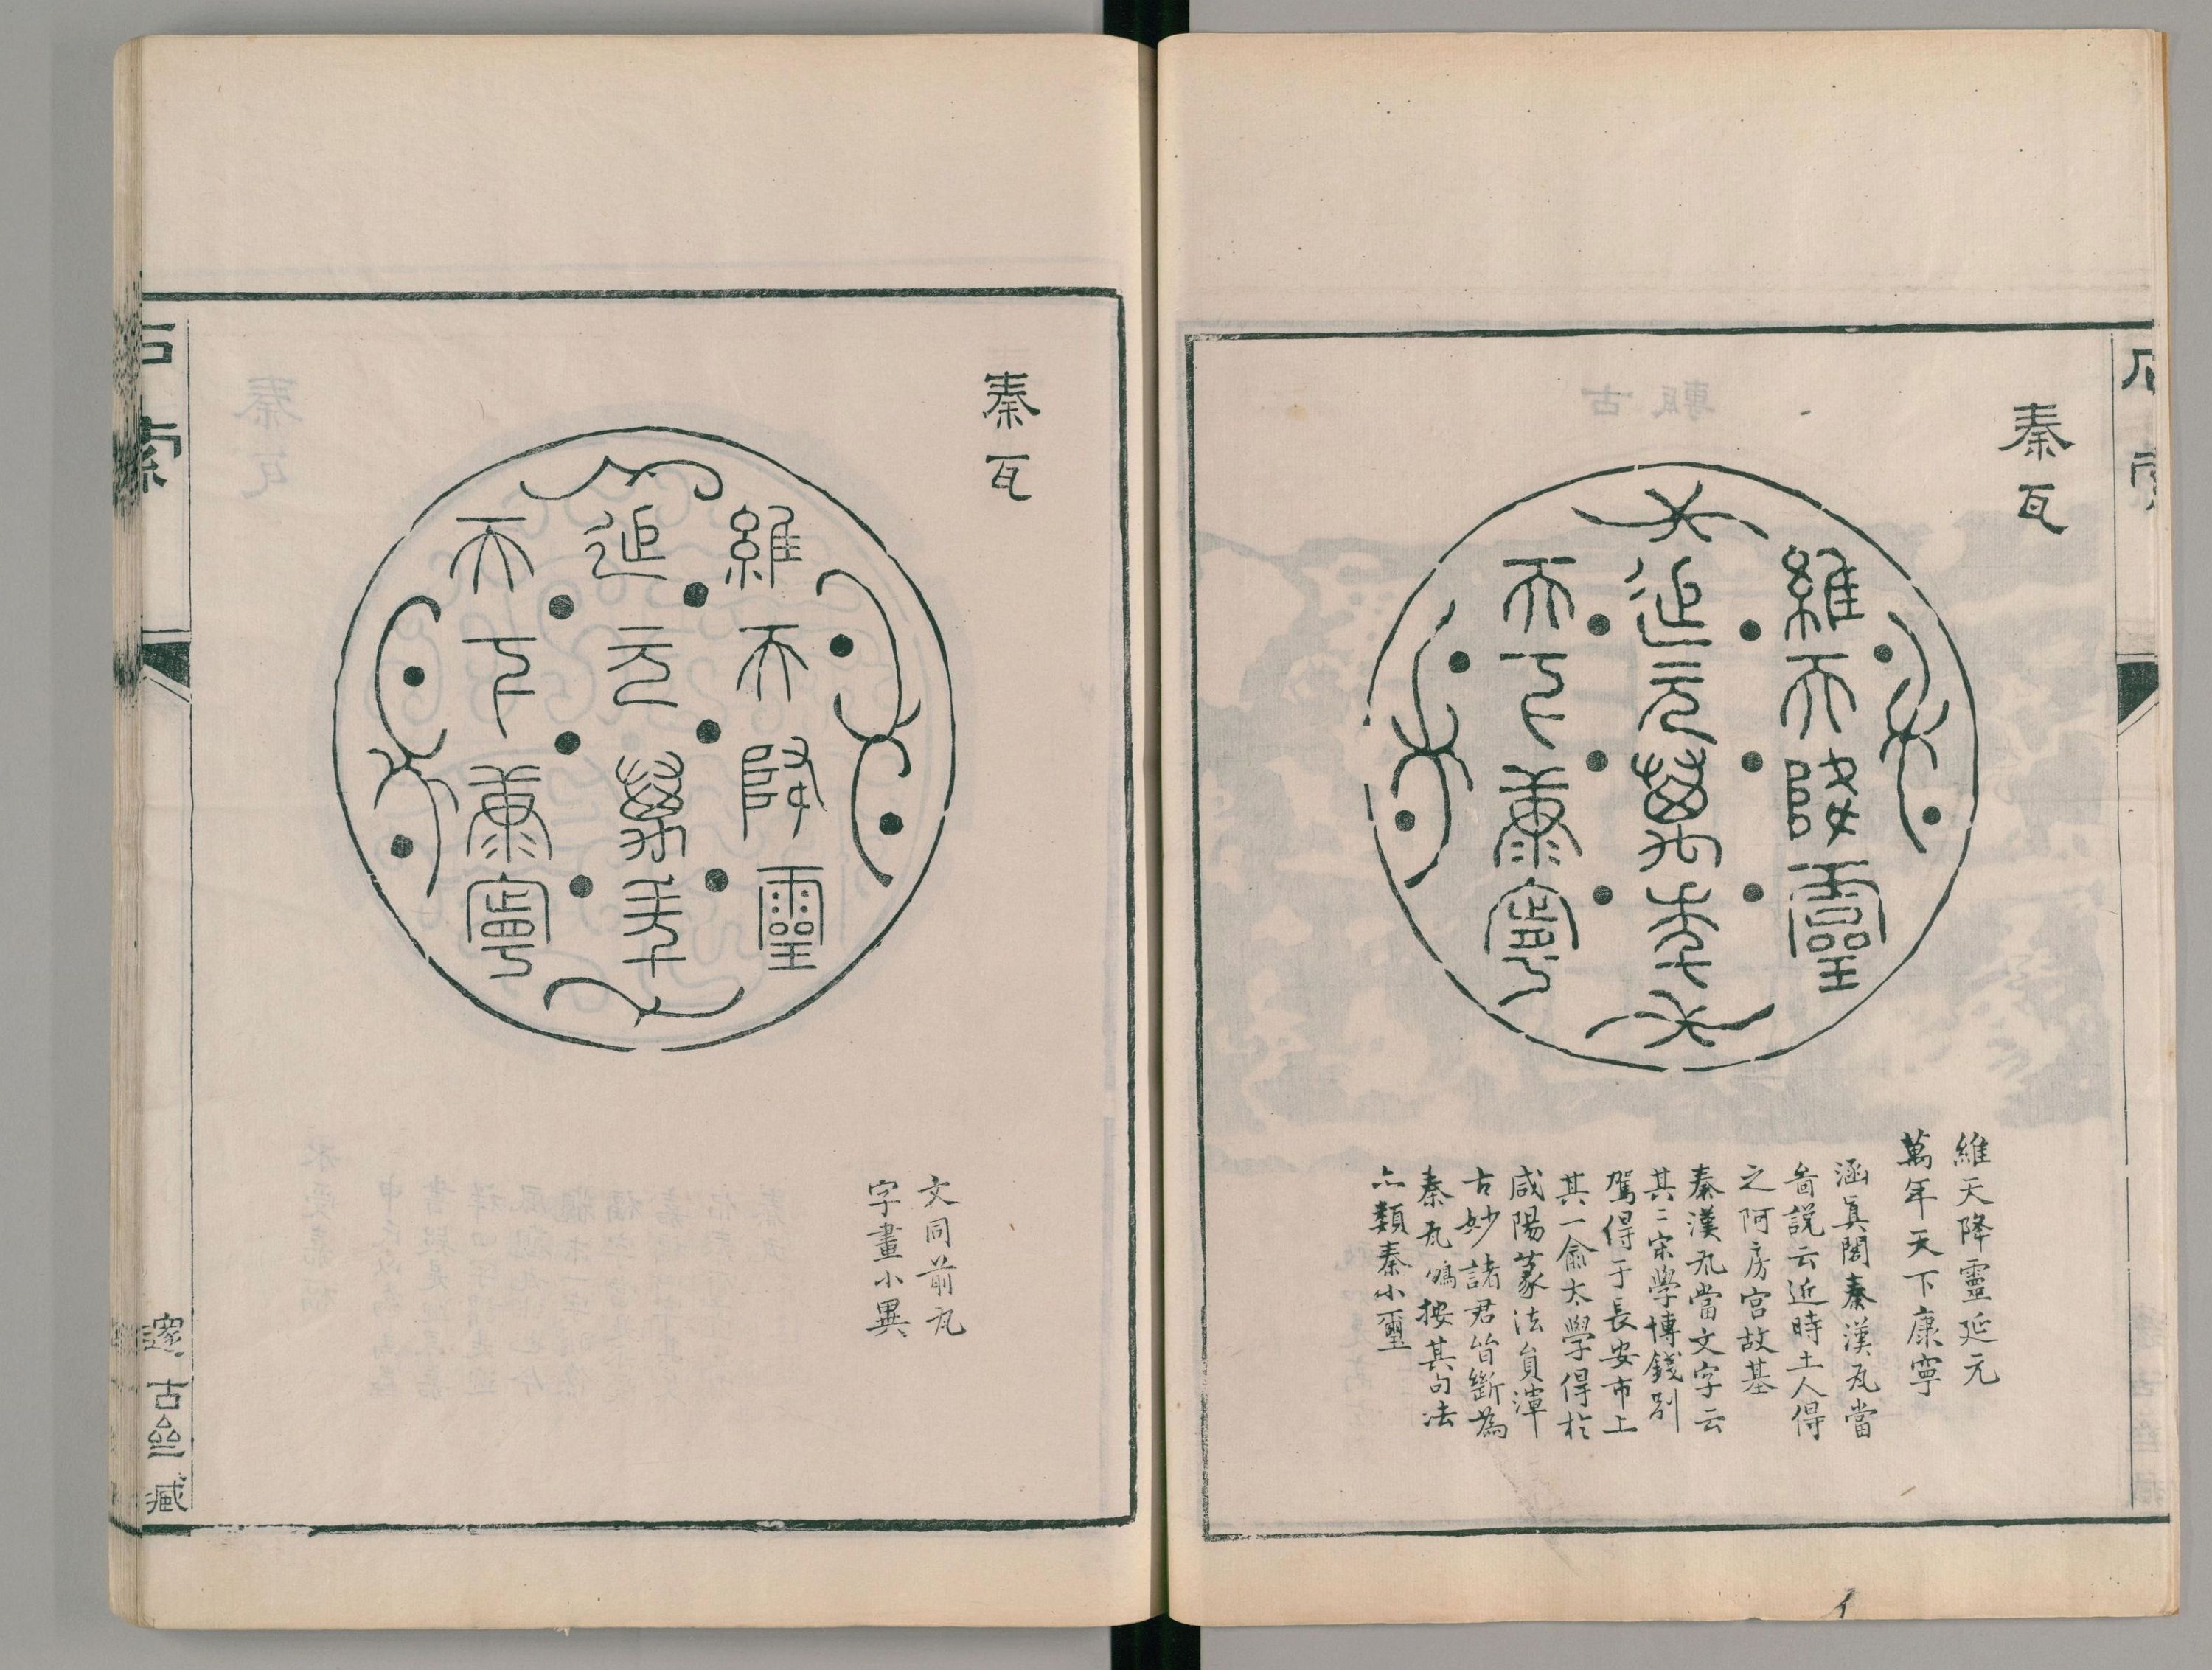 秦瓦
維天降靈
延元萬年
天下康寧
維天降靈延元
萬年天下康寧
涵眞閣秦漢瓦當
啚説云近時土人得
之阿房宮故基
秦漢瓦當文字云
其二宋學博錢別
駕得于長安市上
其一俞太學得於
咸陽篆法員渾
古妙諸君皆斷為
秦瓦鵷按其句法
亦類秦小璽
秦瓦
維天降靈
延元萬年
天下康寧
文同前瓦
字畫小異
石索
邃古齋藏